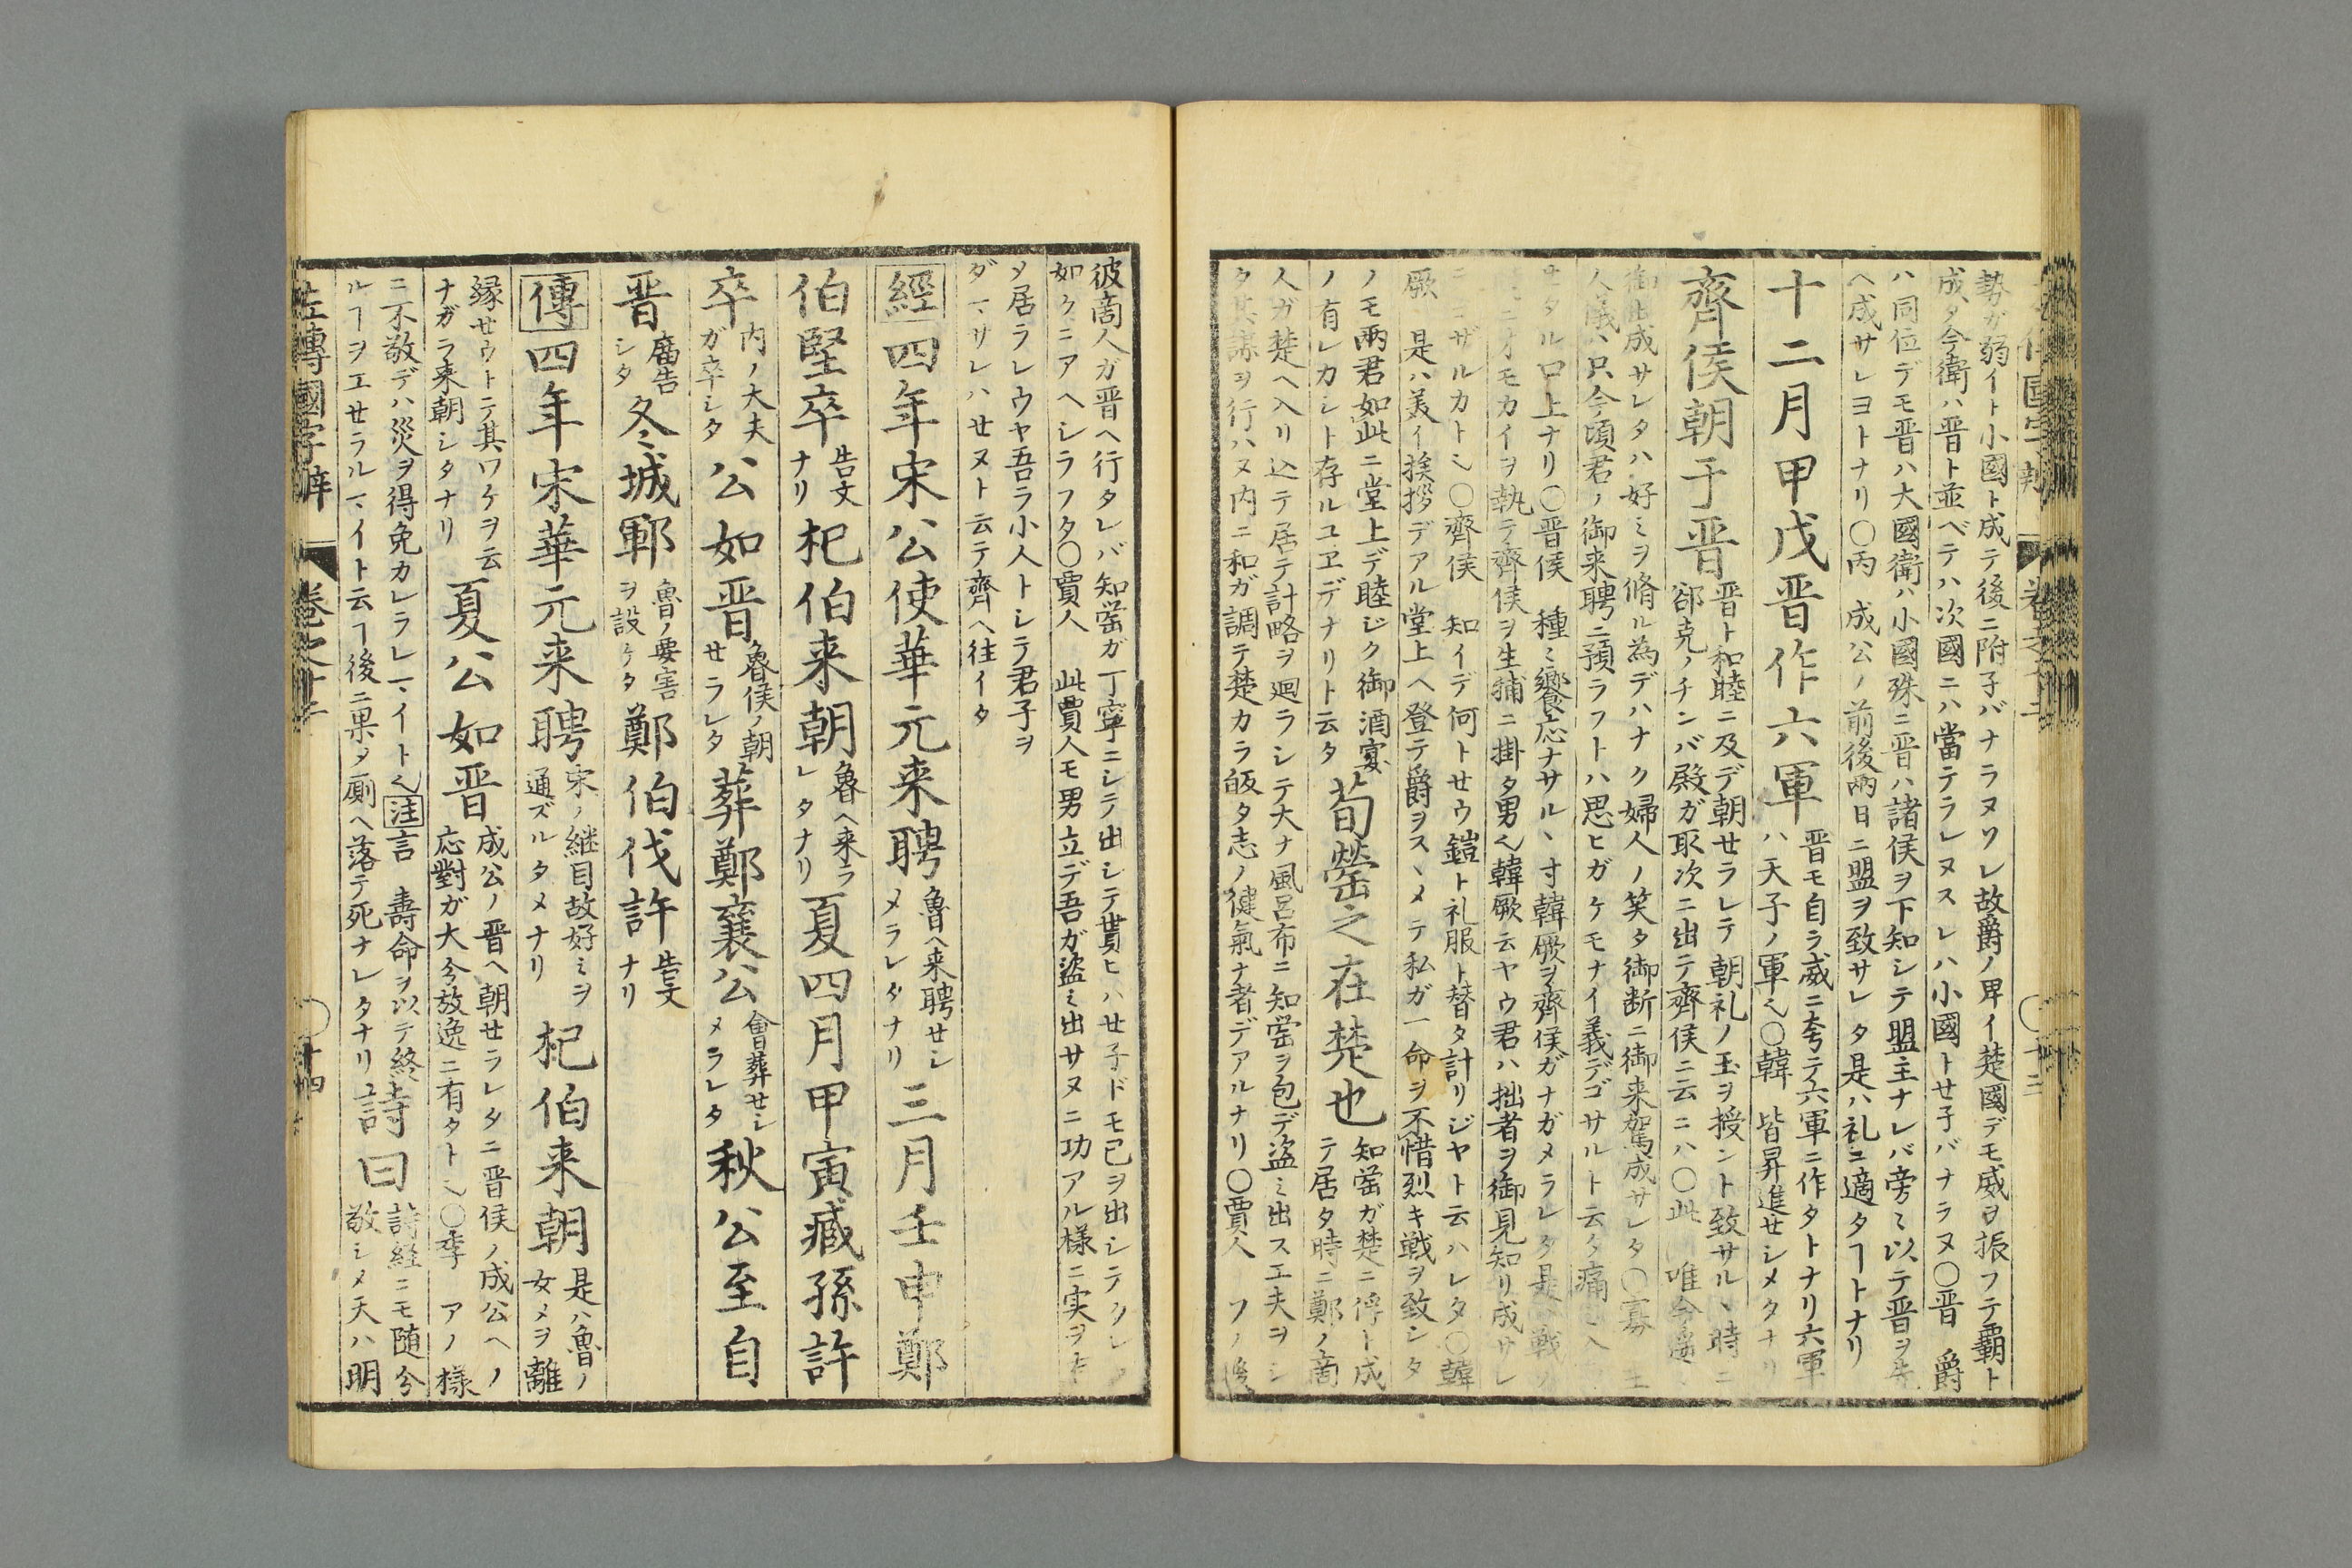 勢ガ弱イト小國ト成テ後ニ附子バナラヌソレ故爵ノ卑イ楚國デモ威ヲ振フテ覇ト
成タ今衛ハ晋ト並ベテハ次國ニハ當テラレヌスレハ小國トセ子バナラヌ〇晋 爵
ハ同位デモ晋ハ大國衛ハ小國殊ニ晋ハ諸侯ヲ下知シテ盟主ナレバ旁〻以テ晋ヲ先
ヘ成サレヨトナリ〇丙 成公ノ前後兩日ニ盟ヲ致サレタ是ハ礼ニ適タヿトナリ
十二月甲戌晋作六軍
晋モ自ラ威ニ夸テ六軍ニ作タトナリ六軍
ハ天子ノ軍也〇韓 皆昇進セシメタナリ
齊侯朝于晋
晋ト和睦ニ及デ朝セラレテ朝礼ノ玉ヲ授ント致サルヽ時ニ
郤克ノチンバ殿ガ取次ニ出テ齊侯ニ云ニハ〇此 唯今
御出成サレタハ好ミヲ脩ル為デハナク婦人ノ笑タ御断ニ御来駕成サレタ〇寡
人儀ハ只今頃君ノ御来聘ニ預ラフトハ思ヒガケモナイ義デゴサルト云タ痛
セタル口上ナリ〇晋侯 種〻饗応ナサルヽ寸韓厥ヲ齊侯ガナガメラレタ是ハ戦
ニオモカイヲ執テ齊侯ヲ生捕ニ掛タ男也韓厥云ヤウ君ハ拙者ヲ御見知リ成サレ
ニゴザルカト也〇齊侯 知イデ何トセウ鎧ト礼服ト替タ計リジヤト云ハレタ〇韓
厥 是ハ美イ挨拶デアル堂上ヘ登テ爵ヲスヽメテ私ガ一命ヲ不惜烈キ戦ヲ致シタ
ノモ兩君如此ニ堂上デ睦ジク御酒宴
ノ有レカシト存ルユヱデナリト云タ
荀罃之在楚也
知罃ガ楚ニ俘ト成
テ居タ時ニ鄭ノ啇
人ガ楚ヘ入リ込テ居テ計略ヲ廻ラシテ大ナ風呂布ニ知罃ヲ包デ盗ミ出ス工夫ヲシ
タ其謀ヲ行ハヌ内ニ和ガ調テ楚カラ皈タ志ノ健氣ナ者デアルナリ〇賈人 フノ後
彼啇人ガ晋ヘ行タレバ知罃ガ丁寧ニシテ出シテ貰ヒハセ子ドモ已ヲ出シテクレタ
如クニアヘシラフタ〇賈人 此賈人モ男立デ吾ガ盗ミ出サヌニ功アル様ニ実ヲ
メ居ラレウヤ吾ラ小人トシテ君子ヲ
ダマサレハセヌト云テ齊ヘ往イタ
經四年宋公使華元来聘
魯ヘ来聘セシ
メラレタナリ
三月壬申鄭
伯堅卒
告文
ナリ
杞伯来朝
魯ヘ来ラ
レタナリ
夏四月甲寅臧孫許
卒
内ノ大夫
ガ卒シタ
公如晋
魯侯ノ朝
セラレタ
葬鄭襄公
會葬セシ
メラレタ
秋公至自
晋
廟告
シタ
冬城鄆
魯ノ要害
ヲ設ケタ
鄭伯伐許
告文
ナリ
傳四年宋華元来聘
宋ノ継目故好ミヲ
通ズルタメナリ
杞伯来朝
是ハ魯ノ
女メヲ離
縁セウトテ其ワケヲ云
ナガラ来朝シタナリ
夏公如晋
成公ノ晋ヘ朝セラレタニ晋侯ノ成公ヘノ
応對ガ大分放逸ニ有タト也〇季 アノ様
ニ不敬デハ災ヲ得免カレラレマイト也注言 壽命ヲ以テ終
ルヿヲエセラルマイト云ヿ後ニ果タ厠ヘ落テ死ナレタナリ
詩曰
詩経ニモ随分
敬シメ天ハ明
左傳國字辨 巻之十二 十四